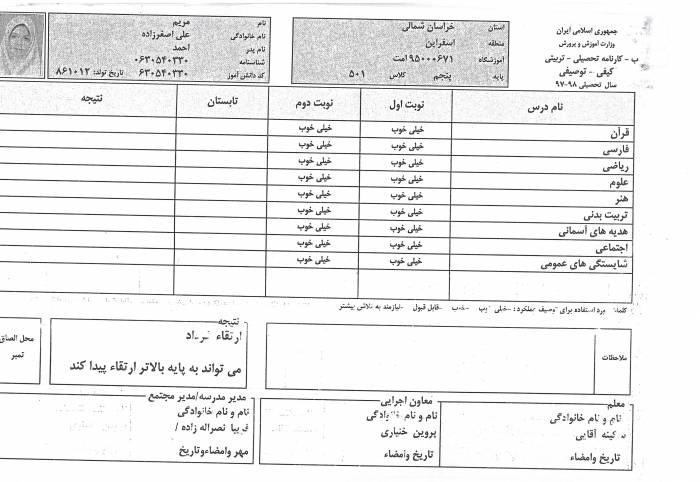 جمهوری اسلامی ایران
وزارت آموزش و پرورش
ب - کارنامه تحصیلی - تربیتی
کیفی - توصیفی
سال تحصیلی ۹۸-۹۷
استان خراسان شمالی
منطقه اسفراین
آموزشگاه ۹۵۰۰۰۶۷۱ امت
پایه پنجم کلاس ۵۰۱
نام مریم
نام خانوادگی علی اصغرزاده
نام پدر احمد
شناسنامه ۰۶۳۰۵۴۰۳۳۰
کد دانش آموز ۶۳۰۵۴۰۳۳۰ تاریخ تولد: ۸۶۱۰۱۲
نام درس نوبت اول نوبت دوم تابستان نتیجه
قرآن خیلی خوب خیلی خوب
فارسی خیلی خوب خیلی خوب
ریاضی خیلی خوب خیلی خوب
علوم خیلی خوب خیلی خوب
هنر خیلی خوب خیلی خوب
تربیت بدنی خیلی خوب خیلی خوب
هدیه های آسمانی خیلی خوب خیلی خوب
اجتماعی خیلی خوب خیلی خوب
شایستگی های عمومی خیلی خوب خیلی خوب
استفاده برای توصیف عملکرد: -خیلی خوب -خوب -قابل قبول -نیازمند به تلاش بیشتر
ملاحظات
نتیجه
ارتقاء
می تواند به پایه بالاتر ارتقاء پیدا کند
محل الصاق
تمبر
معلم
نام و نام خانوادگی
سکینه آقایی
تاریخ وامضاء
معاون اجرایی
نام و نام خانوادگی
پروین ختیاری
تاریخ وامضاء
مدیر مدرسه/مدیر مجتمع
نام و نام خانوادگی
فریبا نصراله زاده /
مهر وامضاءوتاریخ